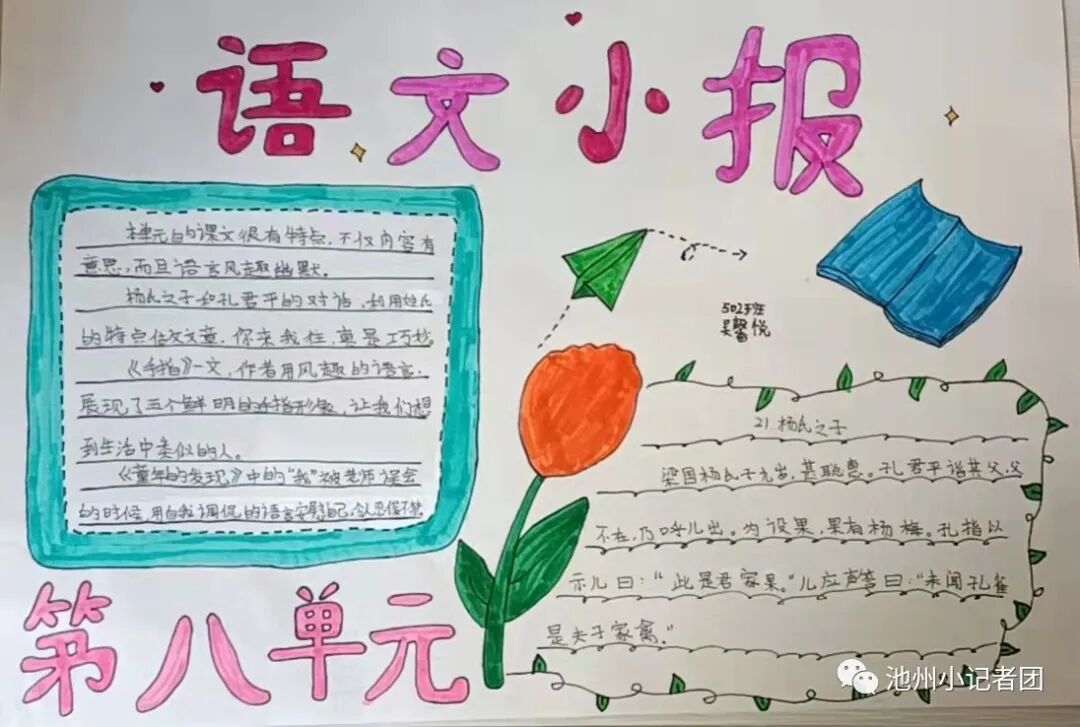 语文小报
本单元的课文很有特点，不仅内容有
意思，而且语言风趣幽默。
杨氏之子和孔君平的对话，利用姓氏
的特点做文章，你来我往，真是巧妙。
《手指》一文，作者用风趣的语言，
展现了五个鲜明的手指形象，让我们想
到生活中类似的人。
《童年的发现》中的“我”被老师误会
的时候，用自我调侃的语言安慰自己，令人忍俊不禁。
第八单元
502班
吴馨悦
21.杨氏之子
梁国杨氏子九岁，甚聪惠。孔君平诣其父，父
不在，乃呼儿出。为设果，果有杨梅。孔指以
示儿曰：“此是君家果。”儿应声答曰：“未闻孔雀
是夫子家禽。”
池州小记者团